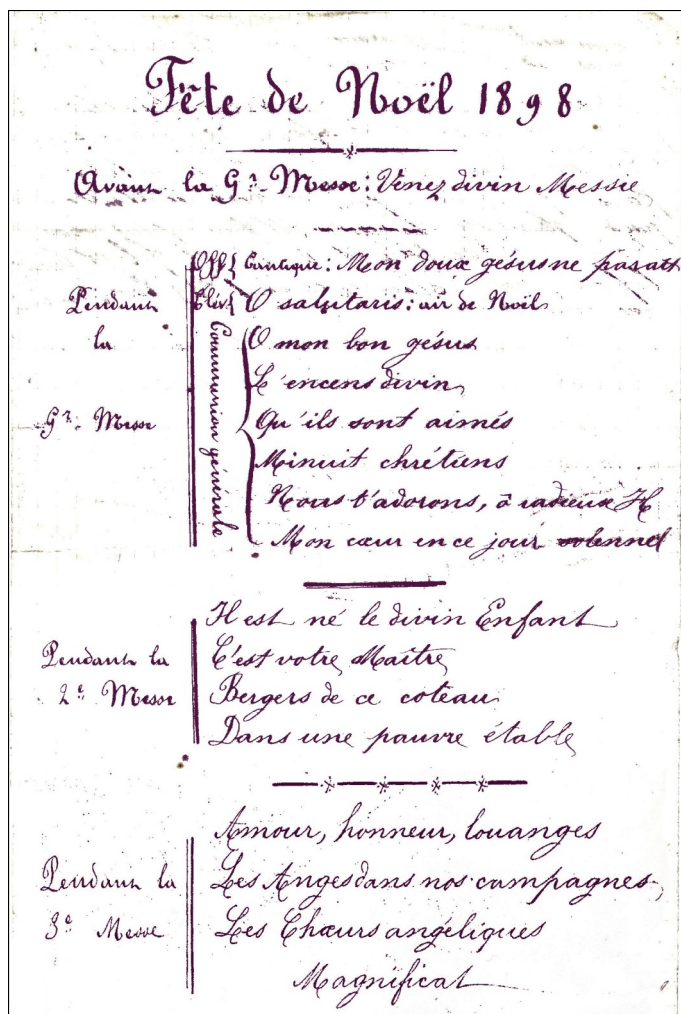 Fête de Noël 1898
Avant la Gde Messe: Venez divin Messie
Pendant la Gde Messe
Off { Cantique: Mon doux Jésus ne
Elév { O salutaris: air de Noël
Communion générale
O mon bon Jésus
L'encens divin
Qu'ils sont aimés
Minuit chrétiens
Nous t'adorons, ô radieux H
Mon cœur en ce jour solennel
Pendant la 2e Messe
Il est né le divin Enfant
C'est votre Maître
Bergers de ce coteau
Dans une pauvre étable
Pendant la 3e Messe
Amour, honneur, louanges
Les Anges dans nos campagnes
Les Chœurs angéliques
Magnificat